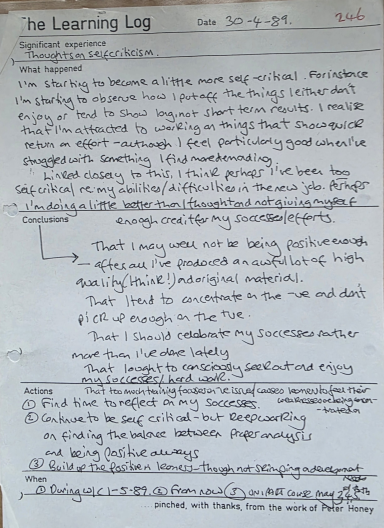 The Learning Log Date 30-4-89. 246
Significant experience
Thoughts on self criticism.
What happened
I'm starting to become a little more self-critical. For instance
I'm starting to observe how I put off the things I either don't
enjoy or tend to show long, not short term results. I realise
that I'm attracted to working on things that show quick
return on effort - although I feel particularly good when I've
struggled with something I find more demanding.
Linked closely to this, I think perhaps I've been too
self critical re: my abilities/difficulties in the new job. Perhaps
I'm doing a little better than I thought and not giving myself
Conclusions enough credit for my successes/efforts.
That I may well not be being positive enough
- after all I've produced an awful lot of high
quality (I think!) and original material.
That I tend to concentrate on the -ve and don't
pick up enough on the +ve.
That I should celebrate my successes rather
more than I've done lately
That I ought to consciously seek out and enjoy
my successes/hard work.
Actions That too much training focuses on -ve issues/causes learners to feel their
① Find time to reflect on my successes. weaknesses being
② Continue to be self critical - but keep working
on finding the balance between proper analysis
and being positive always
③ Build up the positive in learners - though not skimping on development
When
① During W/C 1-5-89. ② From now ③ on course May
pinched, with thanks, from the work of Peter Honey